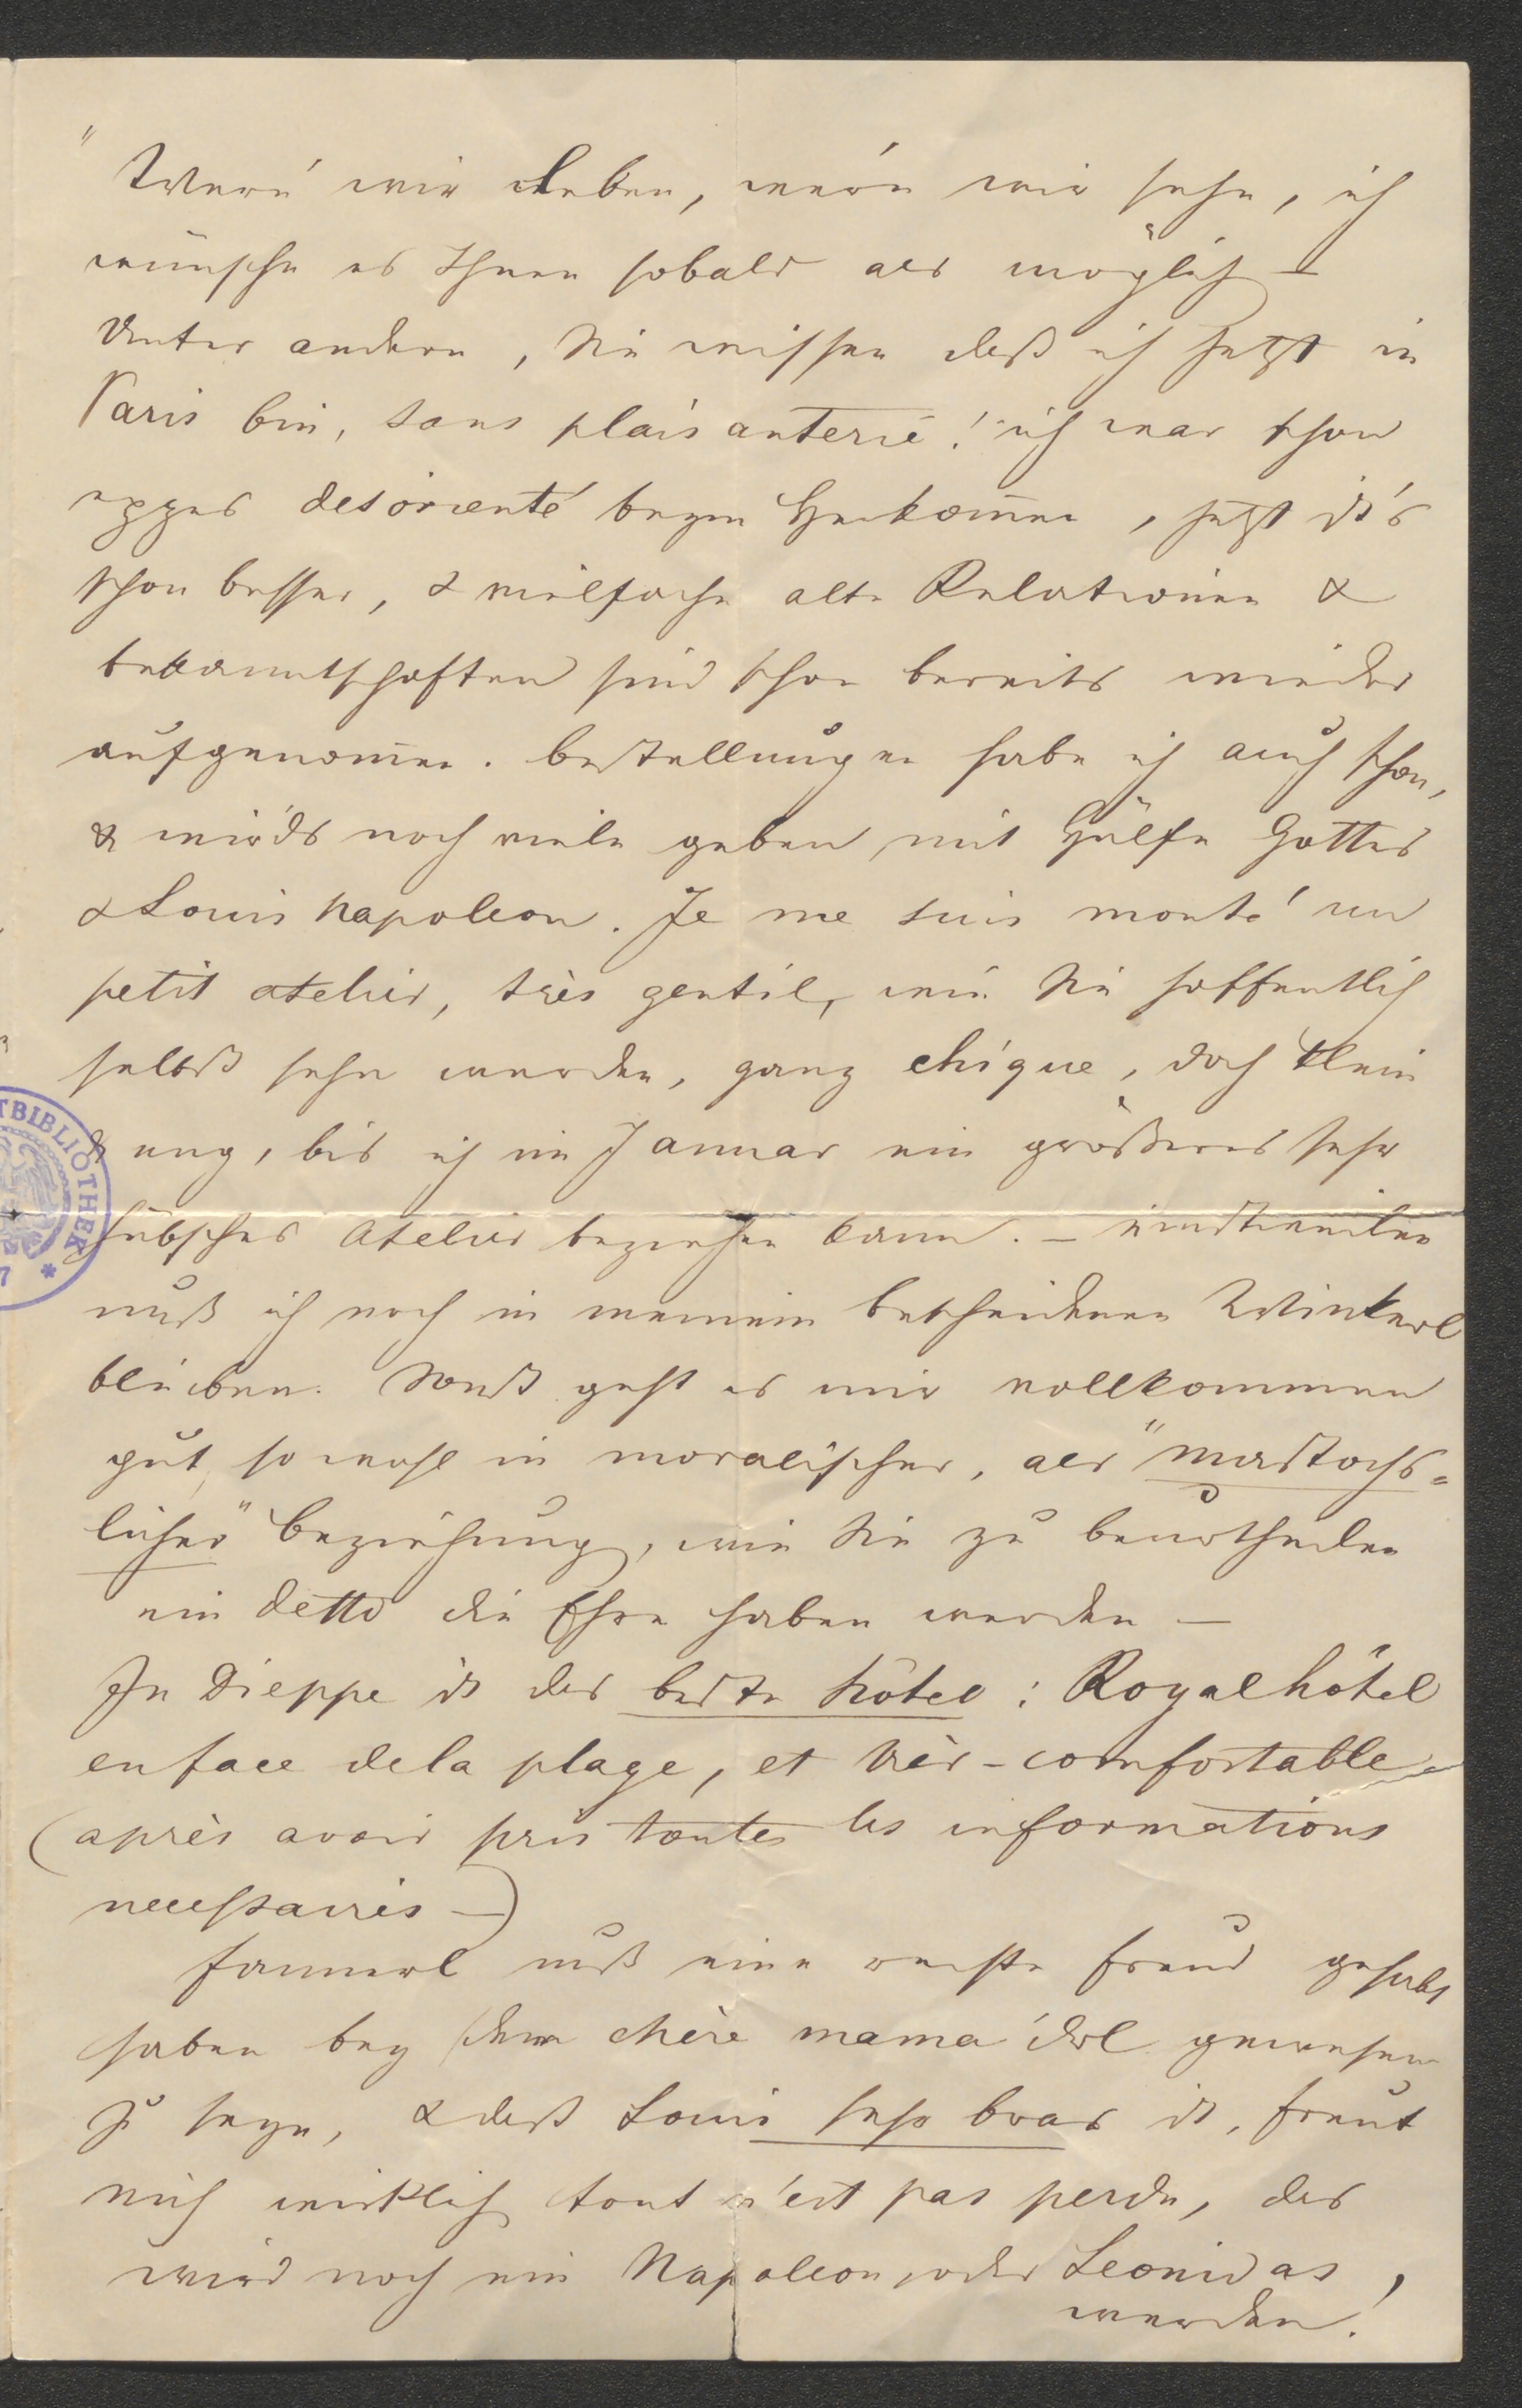 "Wenn wir leben, wern wir sehn, ich
wünsche es Ihnen sobald als möglich —
Unter andern, Sie wissen daß ich jetzt in
Paris bin, sans plaisanterie! ich war schon
desorienté beym Herkom̅en, jetzt is's
schon besser, & vielfache alte Relationen &
bekanntschaften sind schon bereits wieder
aufgenom̅en. bestellungen habe ich auch schon,
& wird's noch viele geben mit Hülfe Gottes
& Louis Napoleon. Je me suis monté un
petit atelier, très gentil, wie Sie hoffentlich
selbst sehn werden, ganz chique, doch klein
& eng, bis ich im Januar ein größeres sehr
hübsches Atelier beziehen kann. — einstweilen
muß ich noch in meinem bescheidenen Winkerl
bleiben. Sonst geht es mir vollkommen
gut, sowohl in moralischer, als "mastochs-
licher" Beziehung, wie Sie zu beurtheilen
ein detto die Ehre haben werden —
In Dieppe is das beste hôtel: Royalhôtel
en face de la plage, et très-comfortable
(après avoir pris toutes les informations
necessaires —)
Fannerl muß eine rechte Freud gehabt
haben bey dem chère mama'derl gewesen
zu seyn, & daß Louis sehr brav is, freut
mich wirklich tout n'est pas perdu, das
wird noch ein Napoleon, oder Leonidas,
werden!
TBIBLIOTHEK